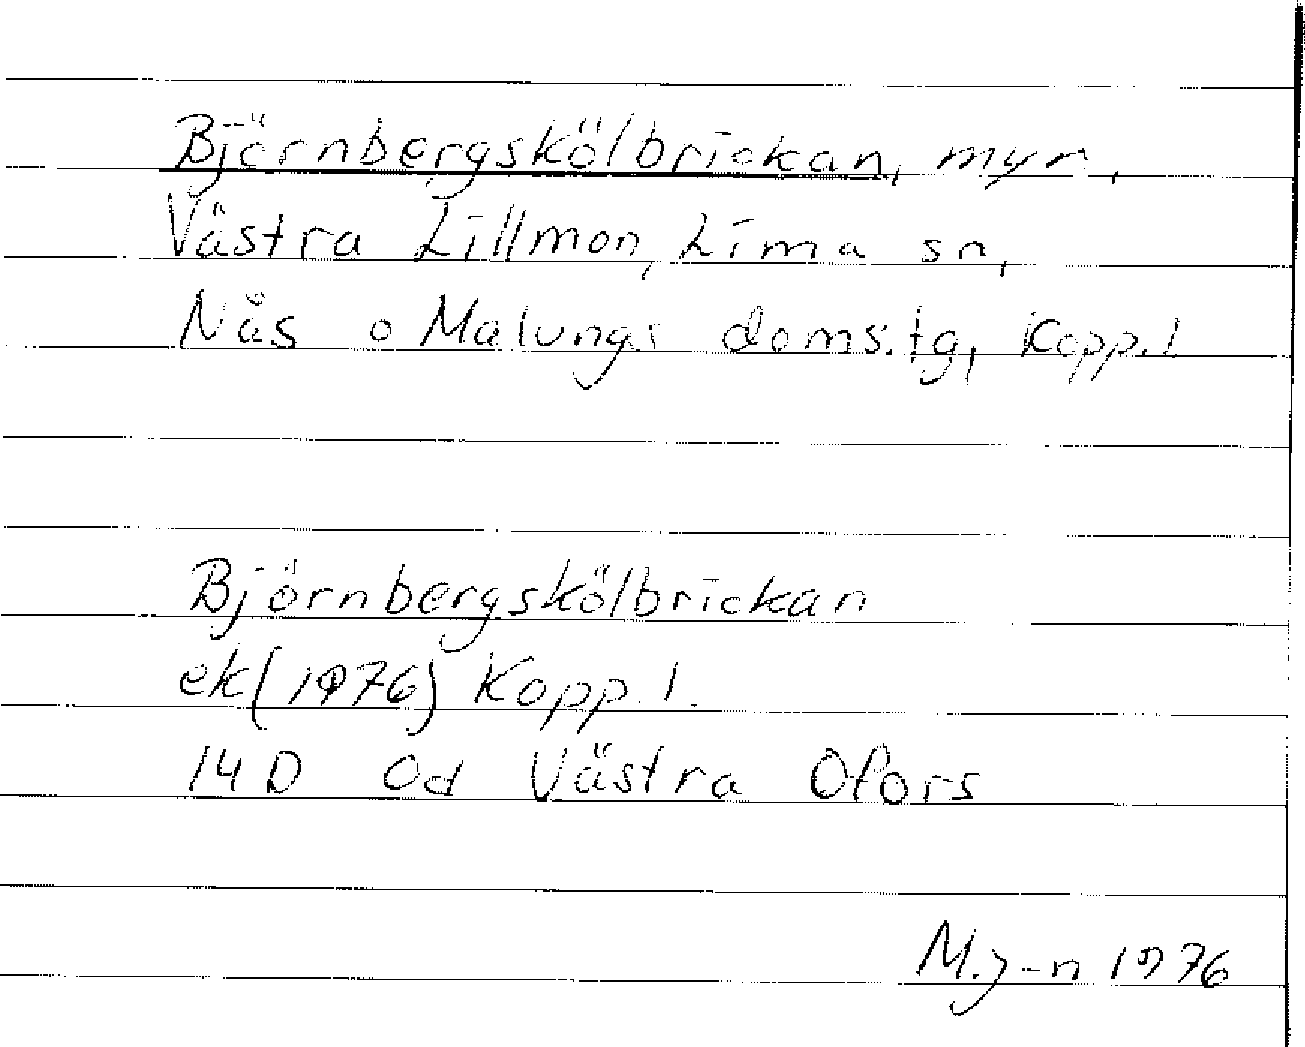 Björnbergskölbrickan, myr,
Västra Lillmon, Lima sn,
Nås o Malungs doms.tg, Kopp.l
Björnbergskölbrickan
ek(1976) Kopp.l.
14D 0d Västra Ofors
M.J-n 1976